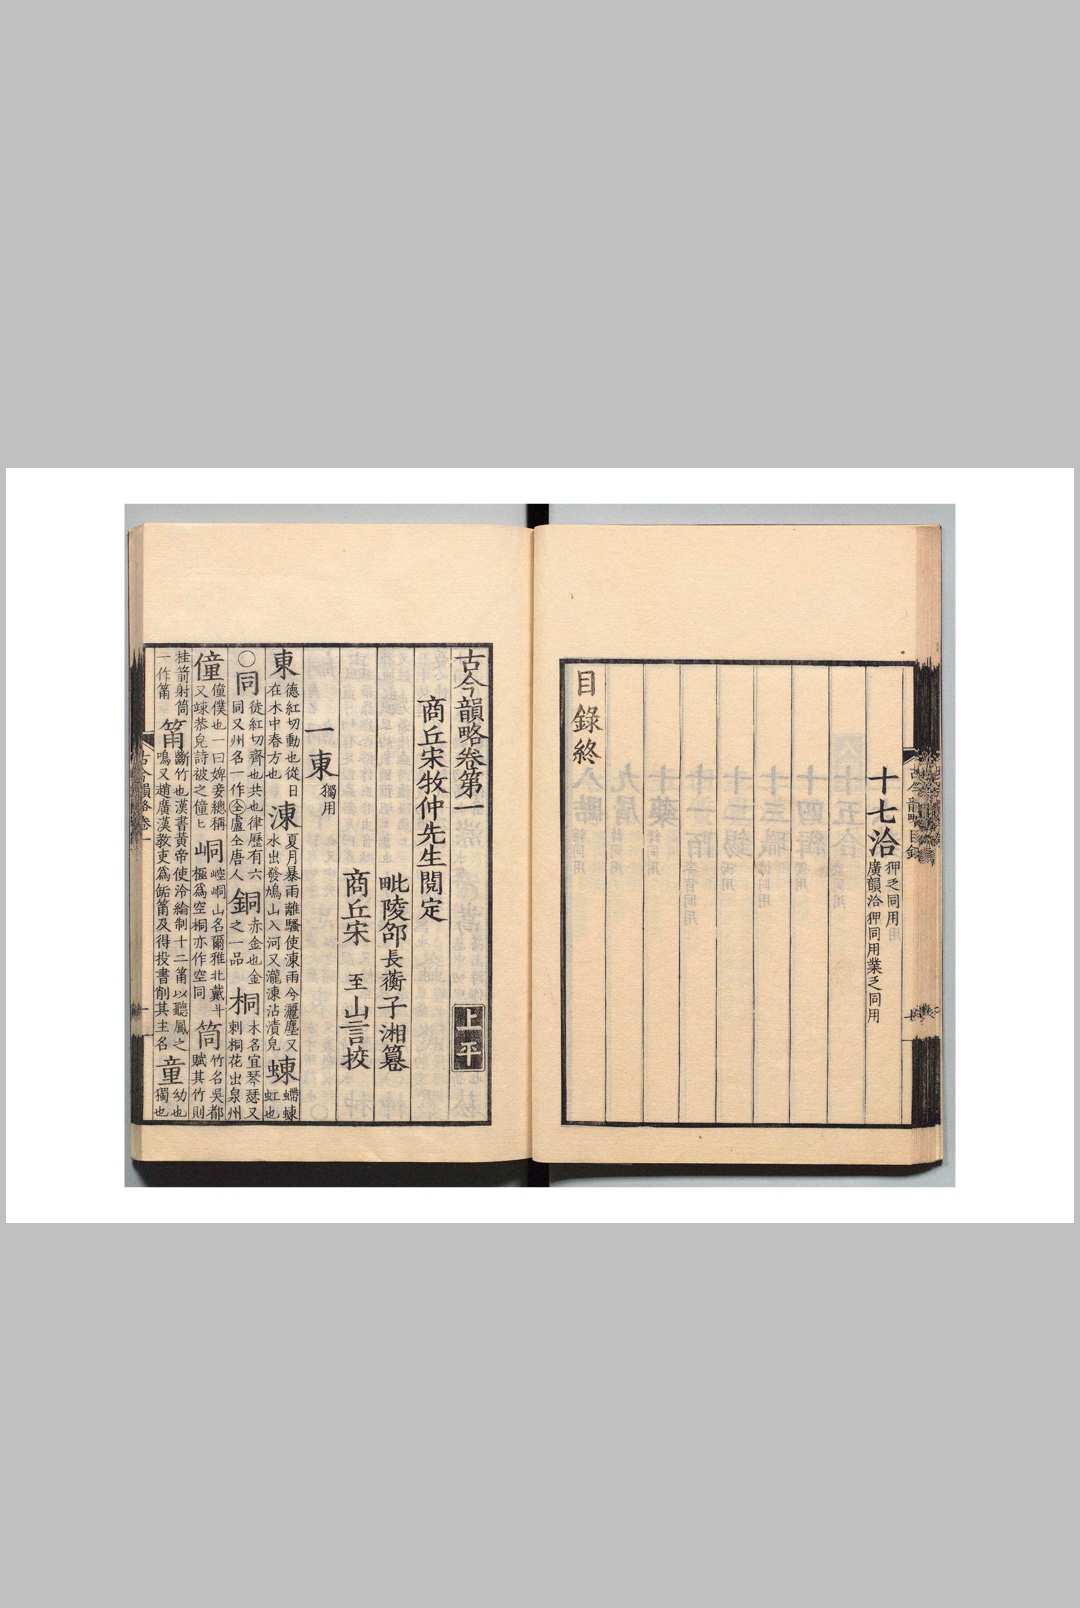 十七洽
狎乏同用
廣韻洽狎同用業乏同用
目錄終
古今韻略卷第一
上平
商丘宋牧仲先生閱定
毗陵邵長蘅子湘纂
商丘宋至山言挍
一東獨用
東德紅切動也從日在木中春方也
涷夏月暴雨離騷使涷雨兮灑塵又水出發鳩山入河又瀧涷沾漬皃
蝀螮蝀虹也
〇同徒紅切齊也共也律歷有六同又州名一作仝盧仝唐人
銅赤金也金之一品
桐木名宜琴瑟又刺桐花出泉州
僮僮僕也一曰婢妾總稱又竦恭皃詩被之僮〻
峒崆峒山名爾雅北戴斗極爲空桐亦作空同
筒竹名吳都賦其竹則
桂箭射筒一作筩
筩斷竹也漢書黃帝使泠綸制十二筩以聽鳳之鳴又趙廣漢教吏爲缿筩及得投書削其主名
童幼也獨也